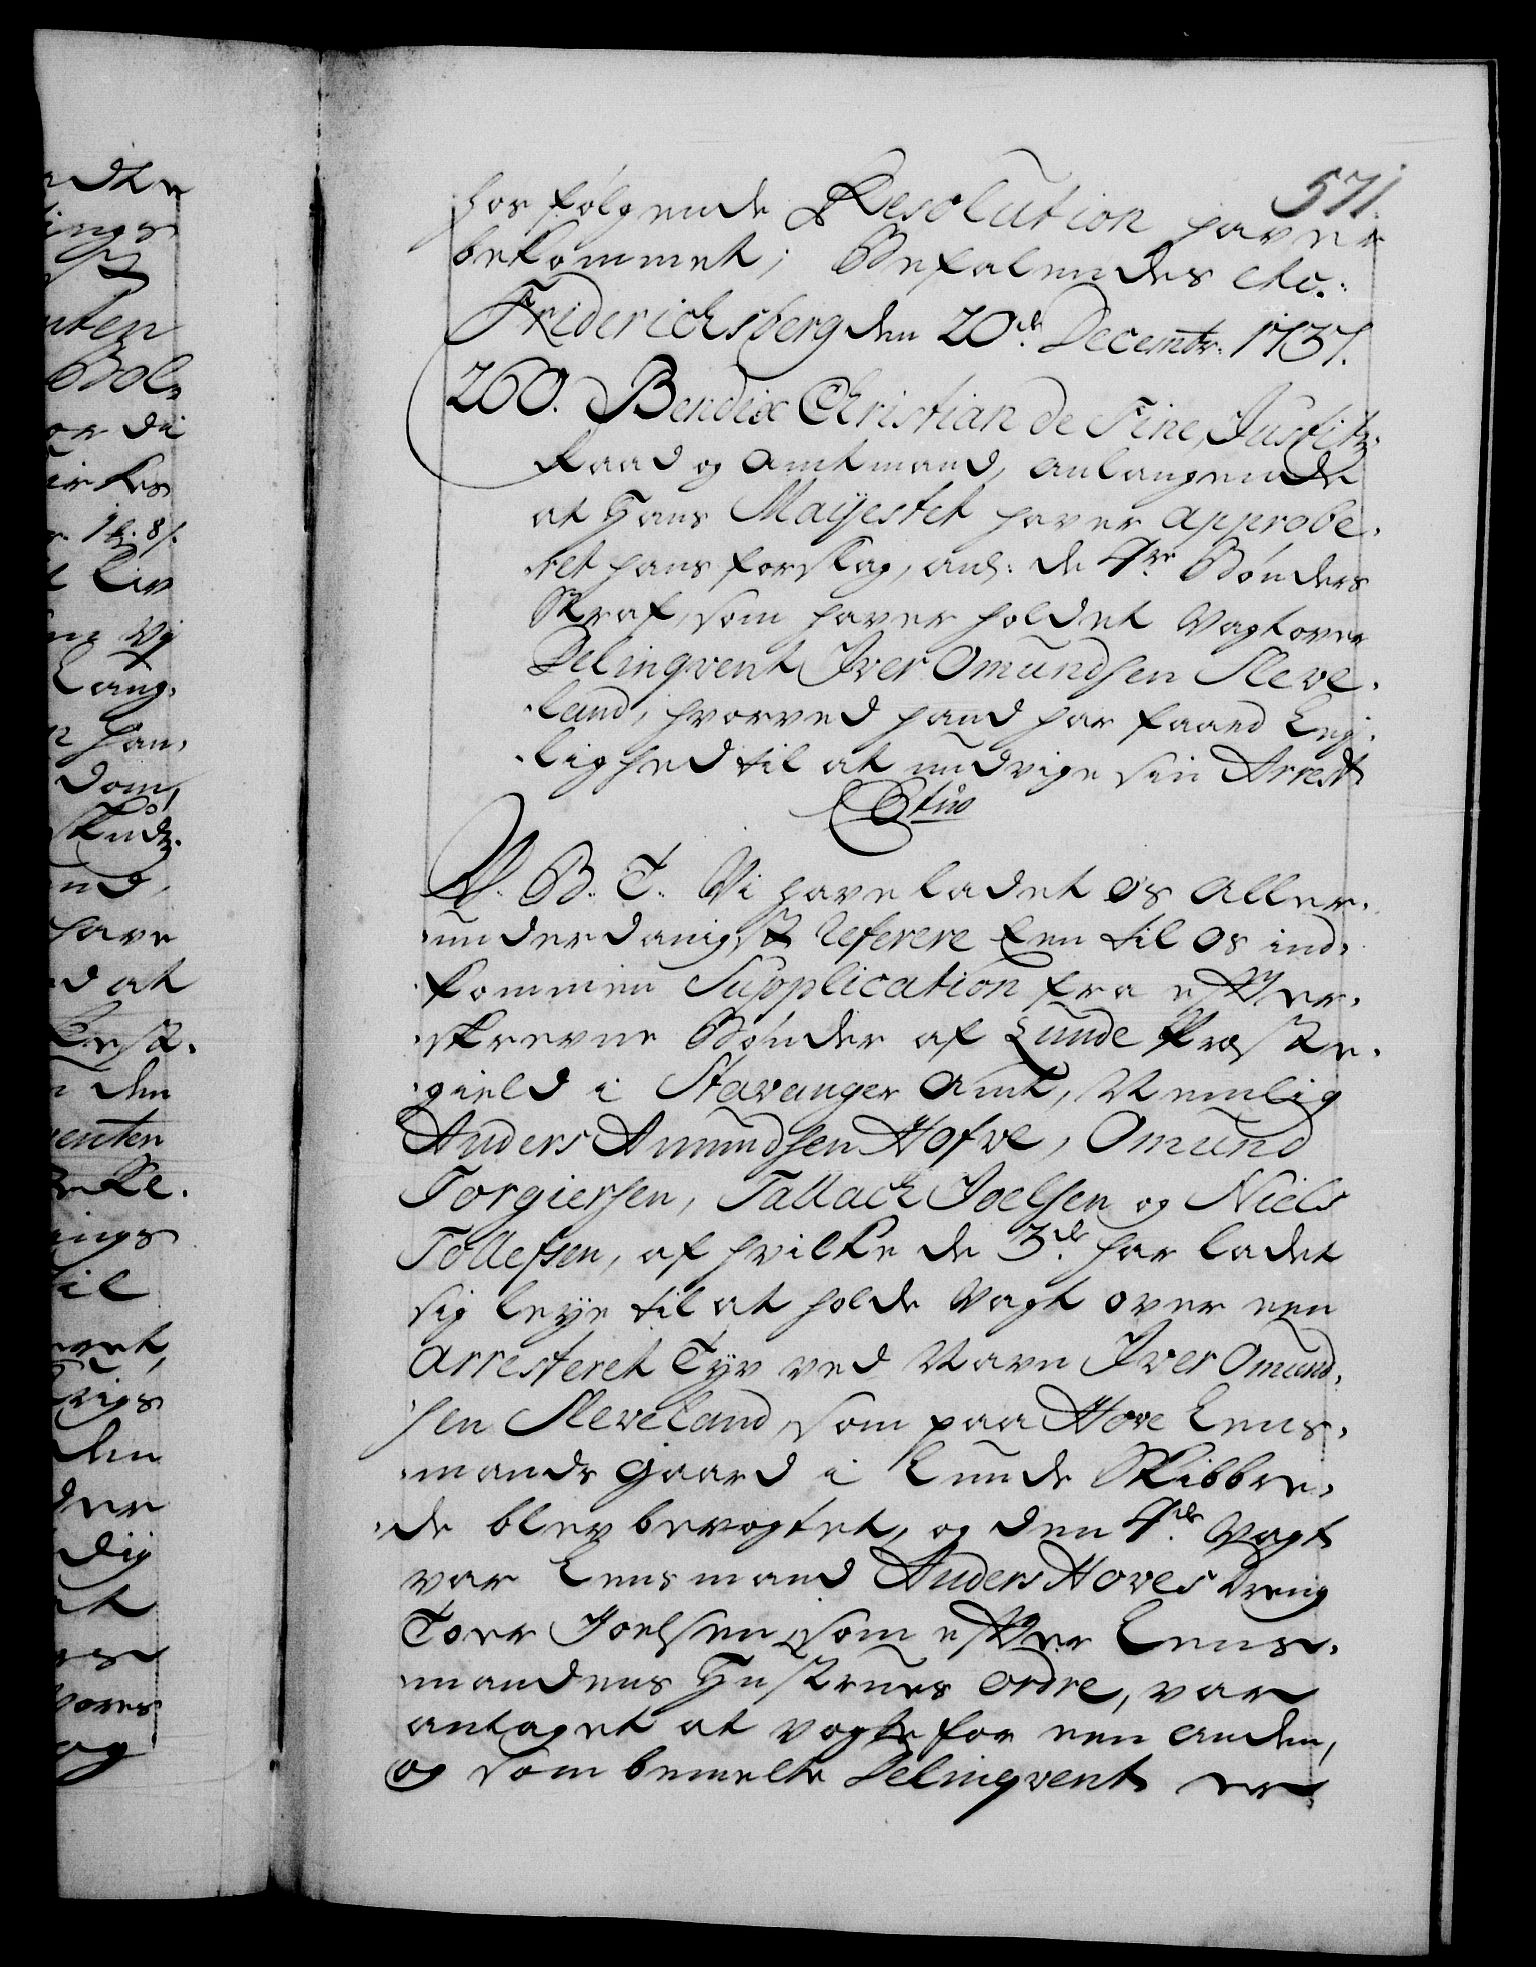 571.
hos følgende Resolution haver
bekommet; Befalendes etc.
Friderichsberg den 20de Decembr. 1737.
260. Bendix Christian de Fine, Justitz-
Raad og Amtmand, anlangende
at Hans Mayestet haver approbe-
ret hans forslag, anl: de 4re Bønders
Straf, som haver holdet Vagt over
Delinqvent Iver Omundsen Sleve-
land, hvorved hand har faaed Lej-
lighed til at undvige sin Arrest
V. B. T. Vi have ladet os Aller-
underdanigst Referere Een til os ind-
kommen Supplication fra efter-
skrevne Bønder af Lunde Præste-
gield i Stavanger Amt, Nemlig
Anders Amundsen Hofve, Omund
Torgiersen, Tallach Joelsen og Niels
Tollefsen, af hvilke de 3de har ladet
sig leye til at holde Vagt over een
Arresteret Tyv ved Navn Iver Omund-
sen Sleveland, som paa Hove Lens-
mands Gaard i Lunde Skibbre-
de blev bevogtet, og den 4de Vagt
var Lensmand Anders Hoves Dreng
Toer Joelsen, som efter Lens-
mandens Hustrues Ordre, var
antaget at vogte for een anden,
og som bemelte Delinqvent er